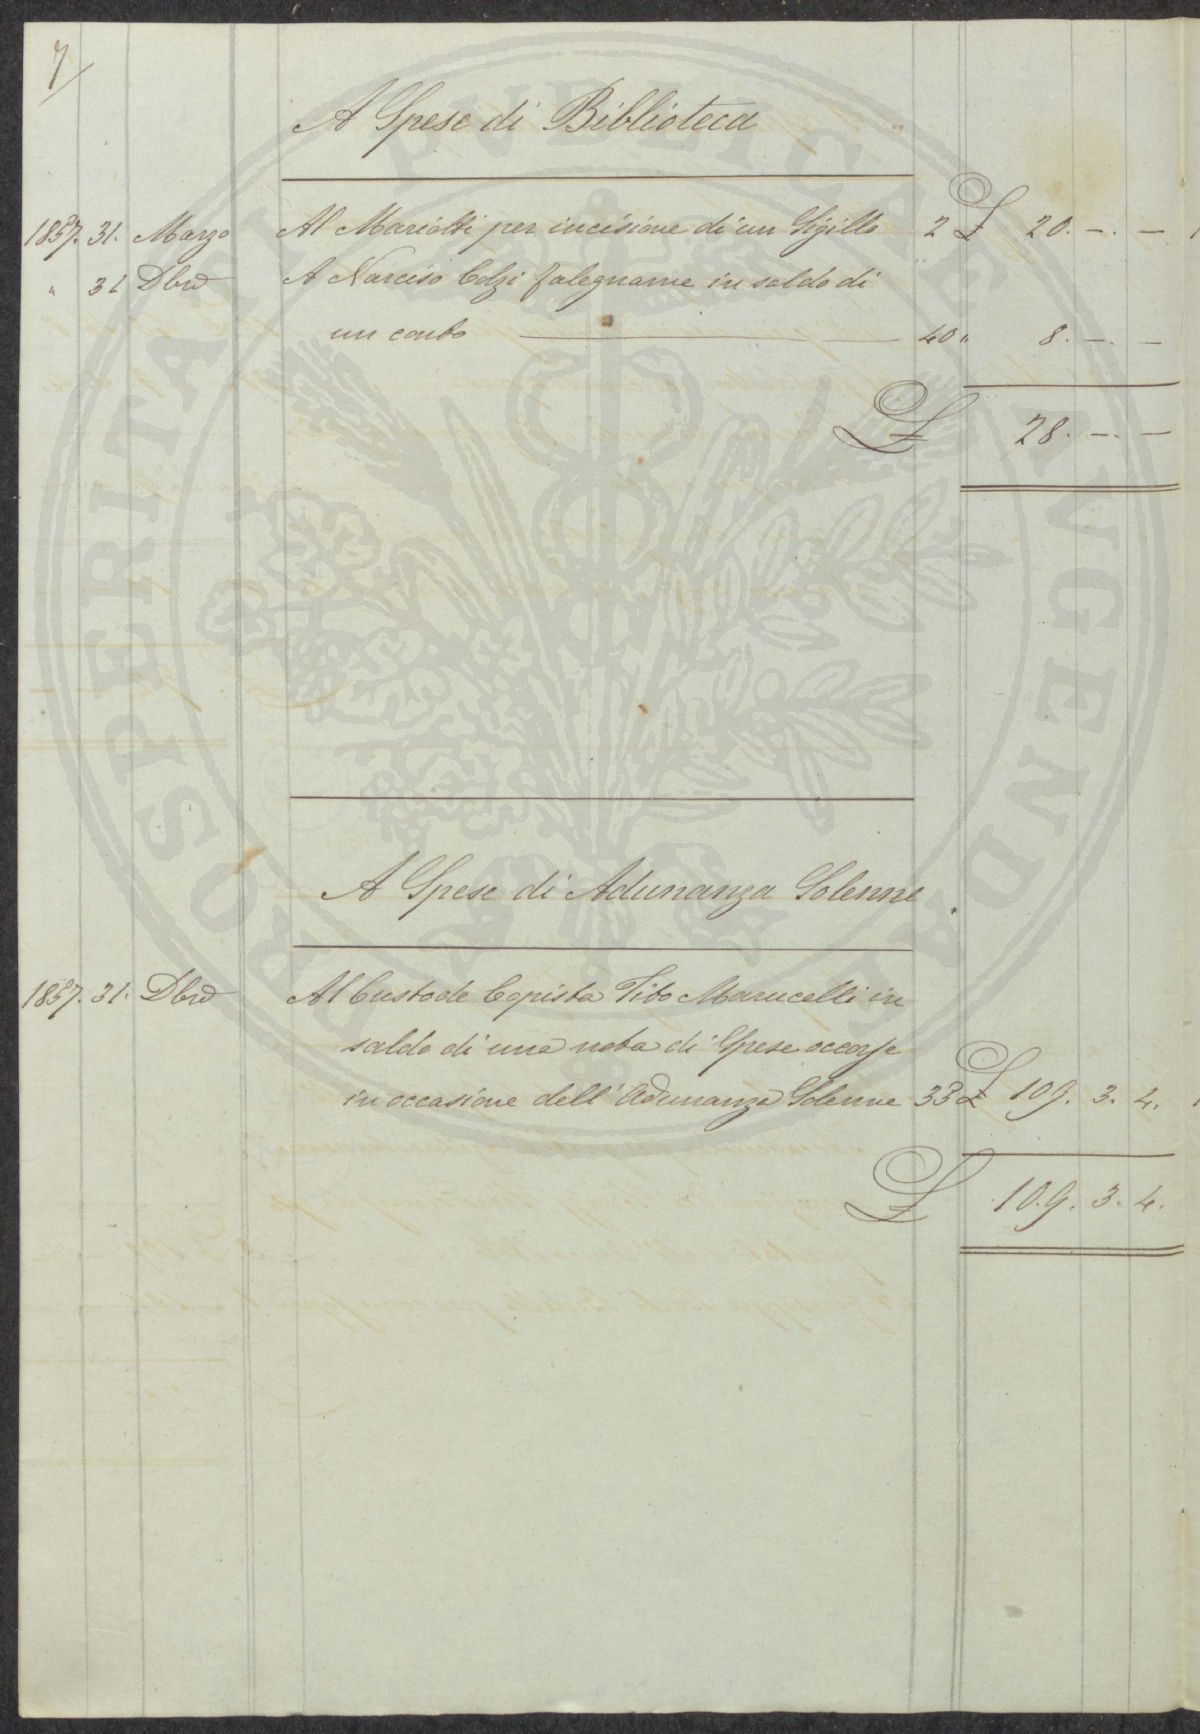 7
A Spese di Biblioteca
1857. 31. Marzo Al Mariotti per incisione di un Sigillo 2 £ 20. -. -
" 31 Dbre A Narciso Colzi falegname in saldo di
un conto 40 " 8. -. -
£ 28. -. -
A Spese di Adunanza Solenne
1857. 31. Dbre Al Custode Copista Tito Marucelli in
saldo di una nota di Spese occorse
in occasione dell'Adunanza Solenne 33 £ 109. 3. 4.
£ 109. 3. 4.
PROSPERITATI PUBLICAE AVGENDAE